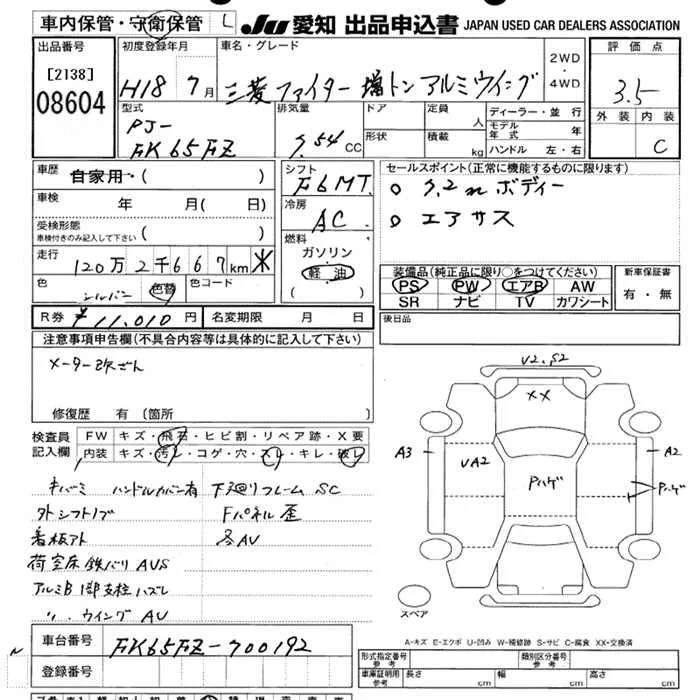 車内保管・守衛保管 L JU 愛知 出品申込書 JAPAN USED CAR DEALERS ASSOCIATION
出品番号 初度登録年月 車名・グレード 2WD・4WD 評価点
[2138]
08604
H18 7月 三菱 ファイター 増トン アルミウイング 3.5
型式 排気量 ドア 定員 人 ディーラー・並行 外装 内装
PJ- 形状 積載 kg モデル年式 年
FK65FZ 7.54 CC ハンドル 左・右 C
車歴 自家用・( ) シフト F6MT セールスポイント(正常に機能するものに限ります)
車検 年 月( 日) 冷房 AC ○ 7.2m ボディー
受検形態 ( ) ○ エアサス
車検付きのみ記入して下さい
燃料
走行 120万2千667km ※ ガソリン
軽油
( )
色 シルバー 色替 色コード
装備品(純正品に限り○をつけてください) 新車保証書
PS PW エアB AW 有・無
SR ナビ TV カワシート
R券 ¥11,010円 名変期限 月 日 後日品
注意事項申告欄(不具合内容等は具体的に記入して下さい)
メーター改ざん
修復歴 有 (箇所
検査員記入欄 FW キズ・飛石・ヒビ割・リペア跡・X要
内装 キズ・汚レ・コゲ・穴・スレ・キレ・破レ
キバミ ハンドルカバー有 下廻りフレーム SC
外シフトノブ Fパネル歪
看板アト 各AU
荷室床 鉄バリ AUS
アルミB 1部支柱ハズレ
〃 ウイング AU
V2.S2
XX
A3
UA2
Pハゲ
A2
Pハゲ
スペア
A-キズ E-エクボ U-凹み W-補修跡 S-サビ C-腐食 XX-交換済
車台番号 FK65FZ-700192
登録番号
形式指定番号 参考 類別区分番号 参考
車庫証明用 参考 長さ cm 幅 cm 高さ cm